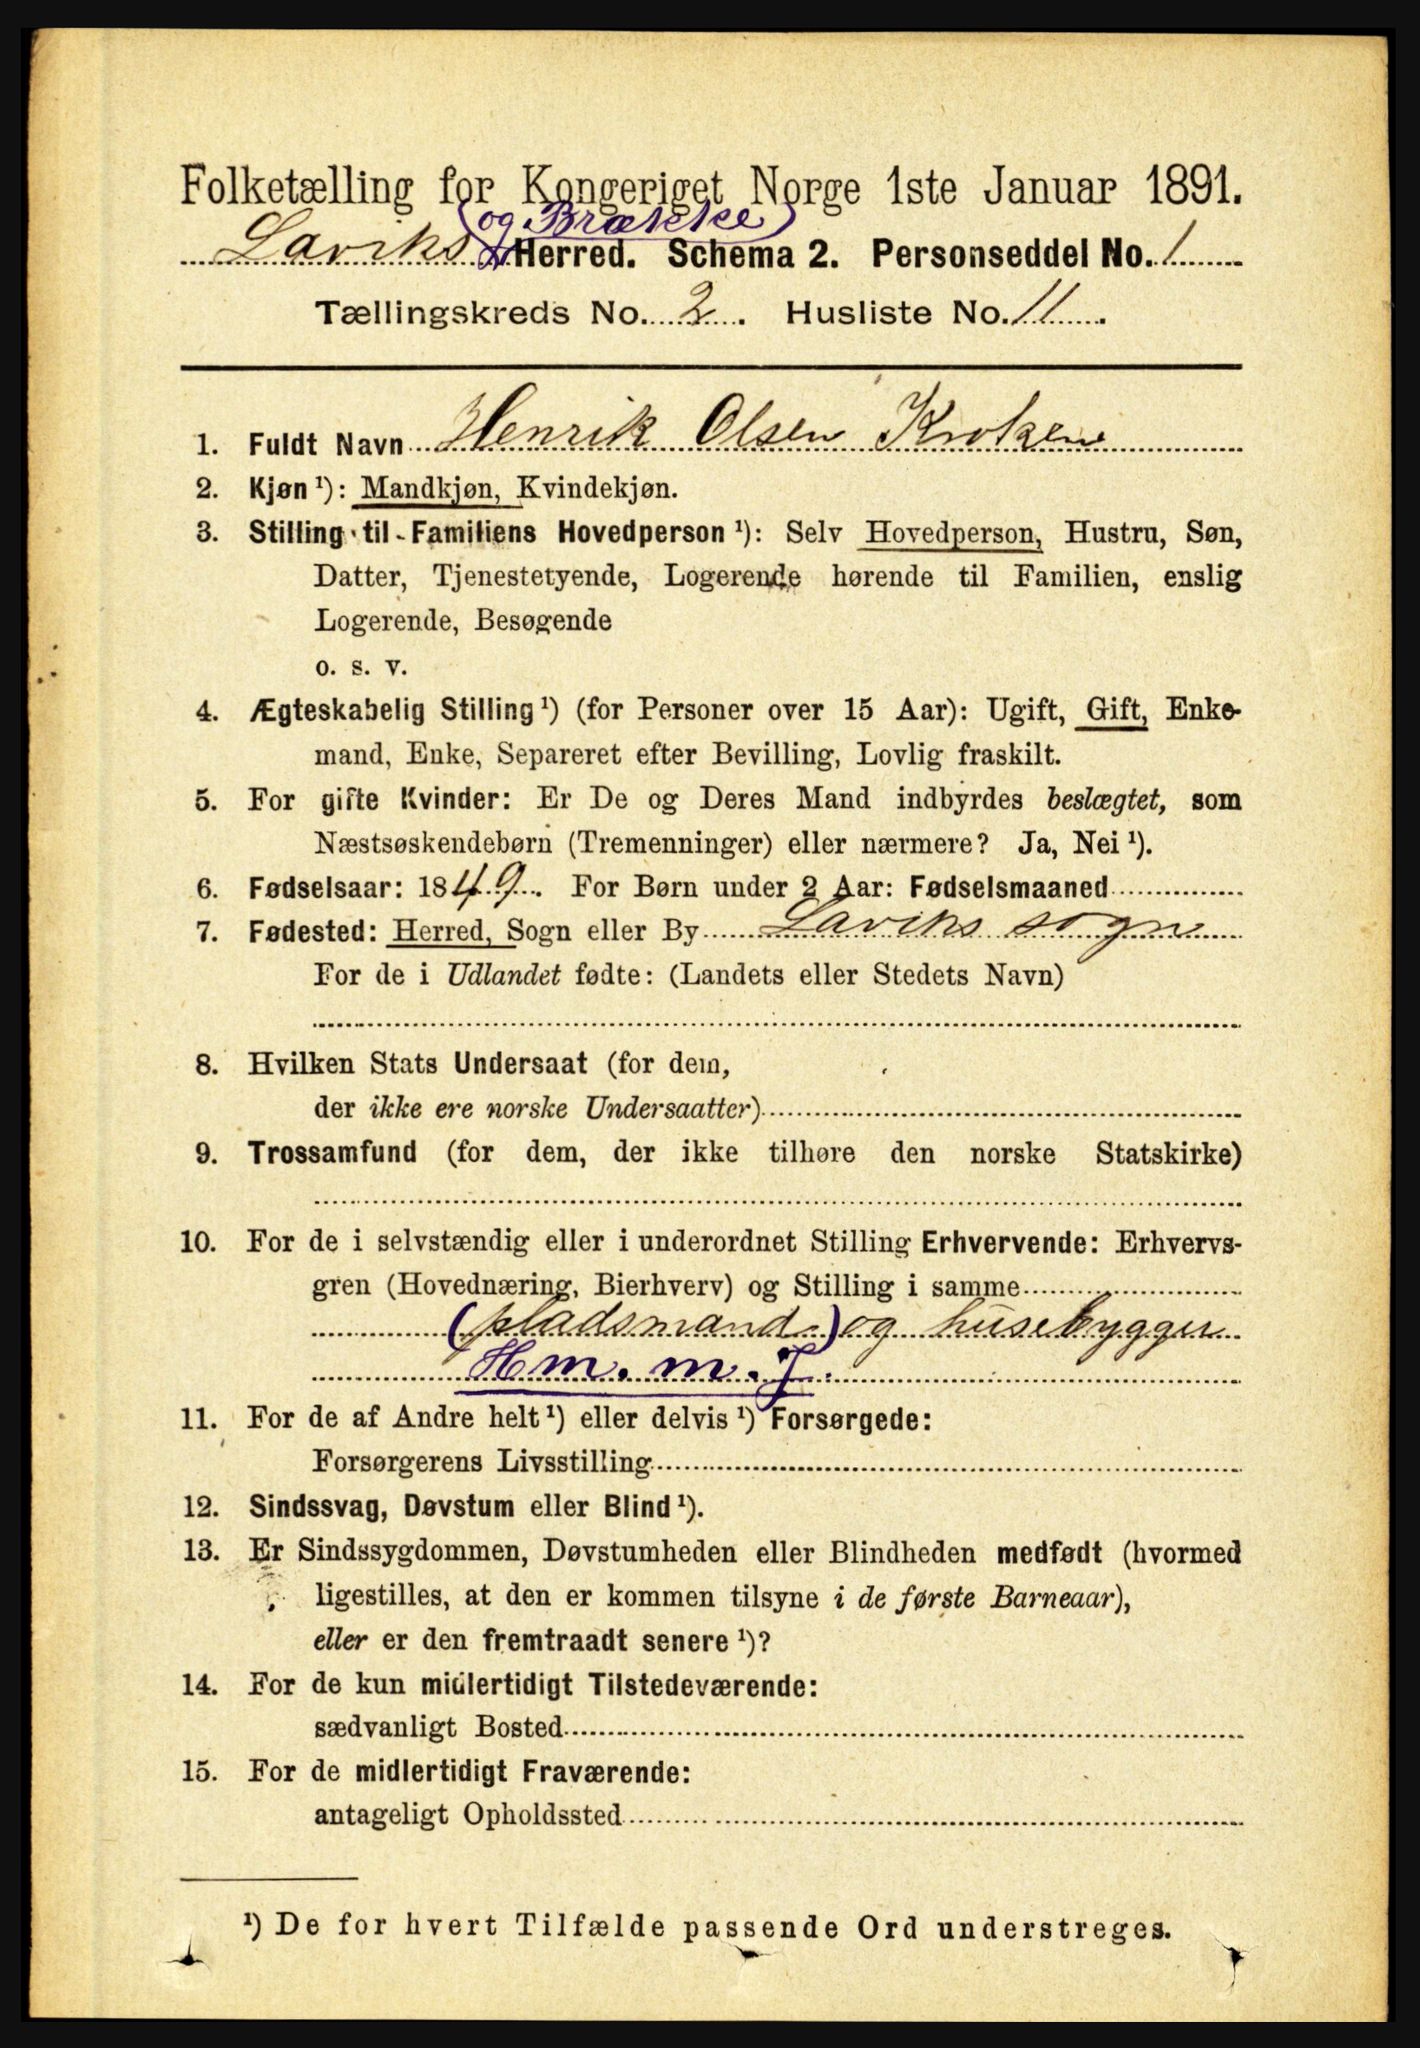 Folketælling for Kongeriget Norge 1ste Januar 1891.
(og Brække)
Laviks Herred. Schema 2. Personseddel No. 1
Tællingskreds No. 2. Husliste No. 11.
1. Fuldt Navn Henrik Olsen Kroken
2. Kjøn ¹): Mandkjøn, Kvindekjøn.
3. Stilling til Familiens Hovedperson ¹): Selv Hovedperson, Hustru, Søn,
Datter, Tjenestetyende, Logerende hørende til Familien, enslig
Logerende, Besøgende
o. s. v.
4. Ægteskabelig Stilling ¹) (for Personer over 15 Aar): Ugift, Gift, Enke-
mand, Enke, Separeret efter Bevilling, Lovlig fraskilt.
5. For gifte Kvinder: Er De og Deres Mand indbyrdes beslægtet, som
Næstsøskendebørn (Tremenninger) eller nærmere? Ja, Nei ¹).
6. Fødselsaar: 1849. For Børn under 2 Aar: Fødselsmaaned
7. Fødested: Herred, Sogn eller By Laviks sogn
For de i Udlandet fødte: (Landets eller Stedets Navn)
8. Hvilken Stats Undersaat (for dem,
der ikke ere norske Undersaatter)
9. Trossamfund (for dem, der ikke tilhøre den norske Statskirke)
10. For de i selvstændig eller i underordnet Stilling Erhvervende: Erhvervs-
gren (Hovednæring, Bierhverv) og Stilling i samme
(pladsmand) og husebygger
Hm. m. J.
11. For de af Andre helt ¹) eller delvis ¹) Forsørgede:
Forsørgerens Livsstilling
12. Sindssvag, Døvstum eller Blind ¹).
13. Er Sindssygdommen, Døvstumheden eller Blindheden medfødt (hvormed
ligestilles, at den er kommen tilsyne i de første Barneaar),
eller er den fremtraadt senere ¹)?
14. For de kun midlertidigt Tilstedeværende:
sædvanligt Bosted
15. For de midlertidigt Fraværende:
antageligt Opholdssted
¹) De for hvert Tilfælde passende Ord understreges.